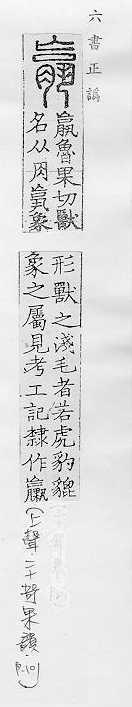 六書正譌
魯果切獸
名从肉象
形獸之淺毛者若虎豹貔
象之屬見考工記隸作臝
(上聲·二十哿果韻·P.10)